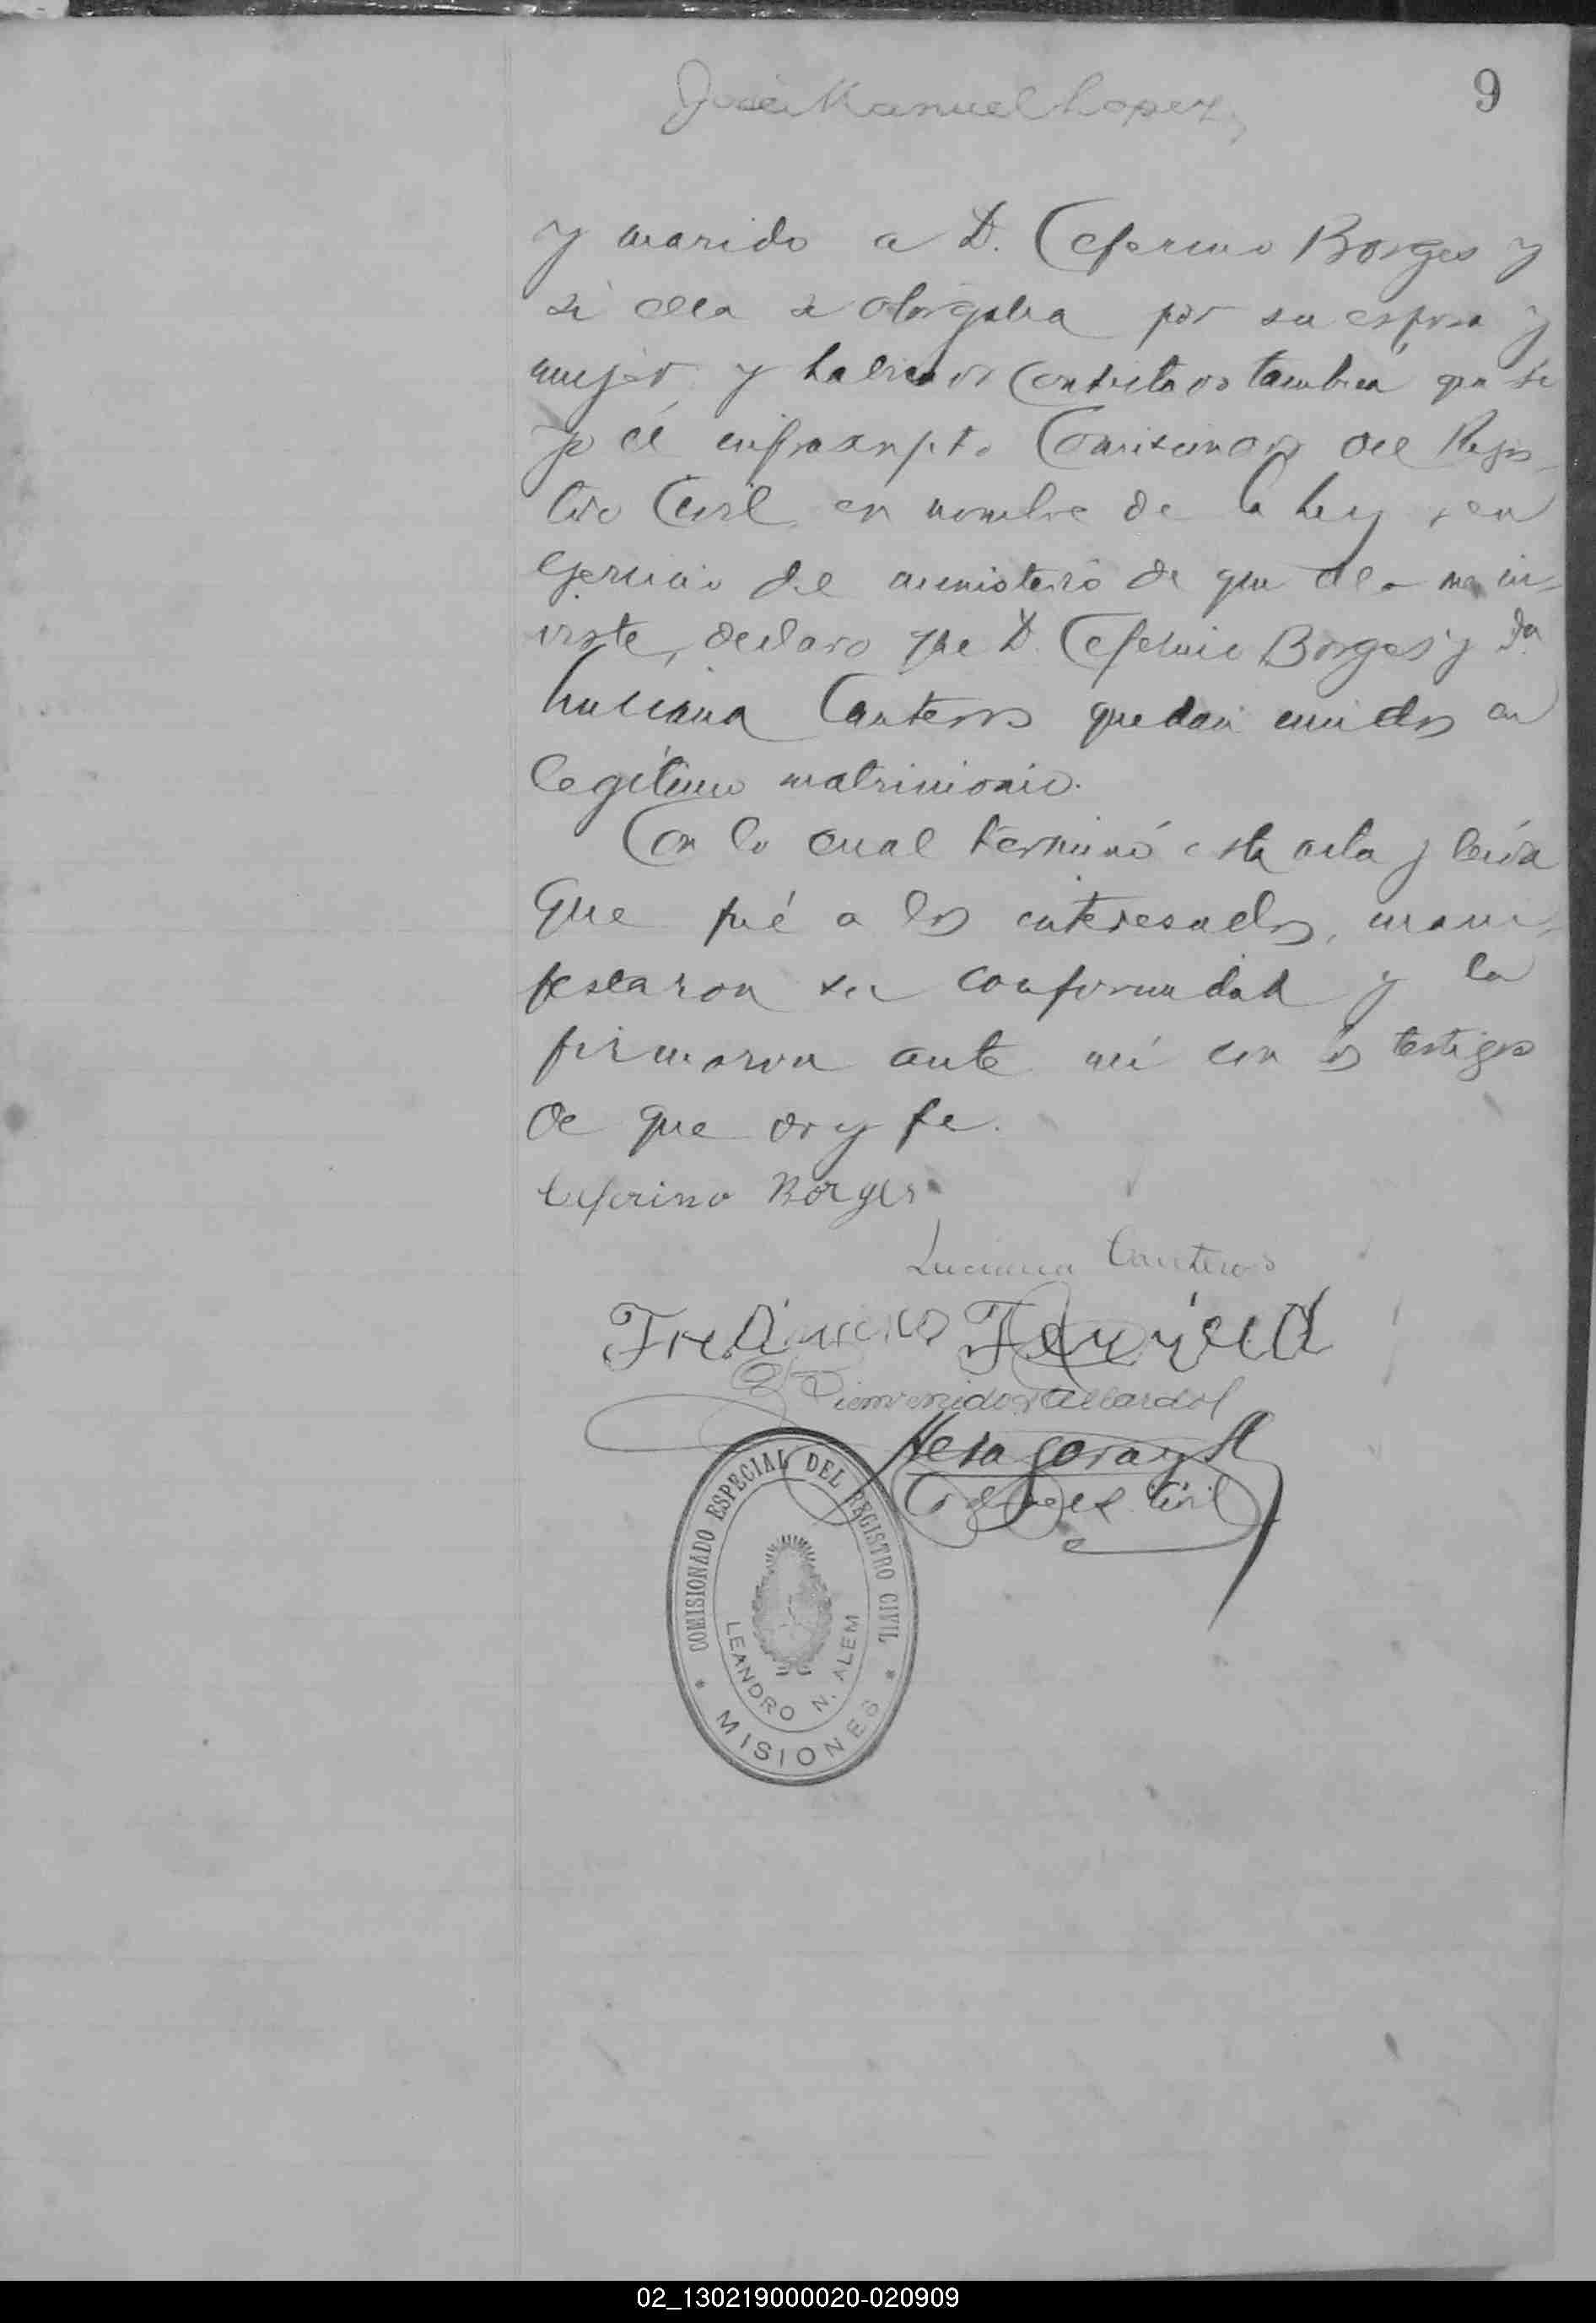 9
José Manuel Lopez
y marido a D. Ceferino Borges y
si ella se otorgaba por su esposa y
mujer y habiendo contestado tambien que si
yo el infrascripto Comisionado del Regis-
tro Civil en nombre de la Ley y en
ejercicio del ministerio de que ella me in-
viste, declaro que D. Ceferino Borges y Da
Luciana Canteros quedan unidos en
legítimo matrimonio.
Con lo cual terminó esta acta y leida
que fué a los interesados, mani-
festaron su conformidad y la
firmaron ante mí con los testigos
de que doy fe.
Ceferino Borges
Luciana Canteros
Bienvenido
Civil
COMISIONADO ESPECIAL DEL REGISTRO CIVIL
LEANDRO N. ALEM
* MISIONES *
02_130219000020-020909